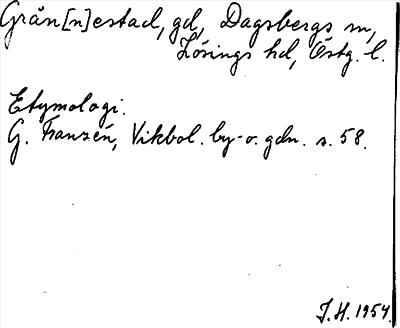 Grån[n]estad, gd, Dagsbergs sn,
Lösings hd, Östg. l.
Etymologi.
G. Franzén, Vikbol. by- o. gdn. s. 58.
J.H. 1954.